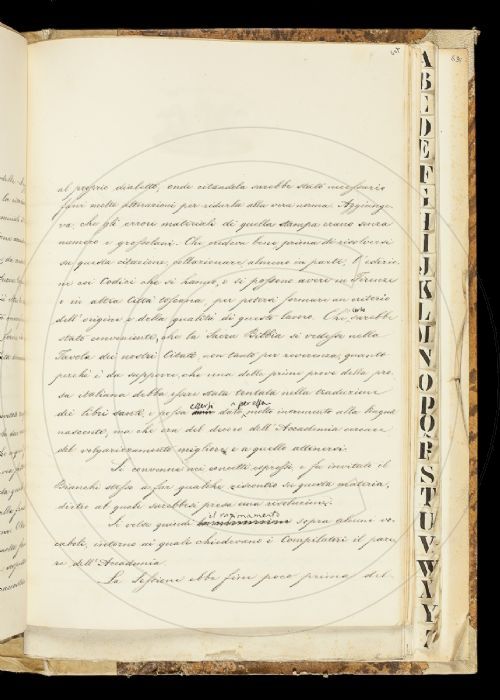 al proprio dialetto, onde citandola sarebbe stato necessario
farvi molte alterazioni per ridurla alla vera norma. Aggiunge-
va, che gli errori materiali di quella stampa erano senza
numero e grossolani. Che credeva bene prima di risolversi
su questa citazione, collazionare almeno in parte, l'edizio-
ne coi Codici che si hanno, e si possono avere in Firenze
e in altra Città toscana, per potersi formare un criterio
dell'origine e della qualità di questo lavoro. Che certo sarebbe
stato conveniente, che la Sacra Bibbia si vedesse nella
Tavola dei nostri Citati, non tanto per reverenza, quanto
perché è da supporre, che una delle prime prove della pro-
sa italiana debba essere stata tentata nella traduzione
dei libri santi, e possa essersi dato per essa molto incremento alla lingua
nascente, ma che era del dovere dell'Accademia cercare
del volgarizzamento migliore e a quello attenersi.
Si convenne nei concetti espressi, e fu invitato il
Bianchi stesso a far qualche riscontro su questa materia,
dietro al quale sarebbesi presa una risoluzione.
Si volse quindi il ragionamento sopra alcune vo-
caboli, intorno ai quali chiedevano i Compilatori il pare-
re dell'Accademia.
La Sessione ebbe fine poco prima del-
A
B
C
D
E
F
G
H
I
J
K
L
M
N
O
P
Q
R
S
T
U
V
W
X
Y
Z